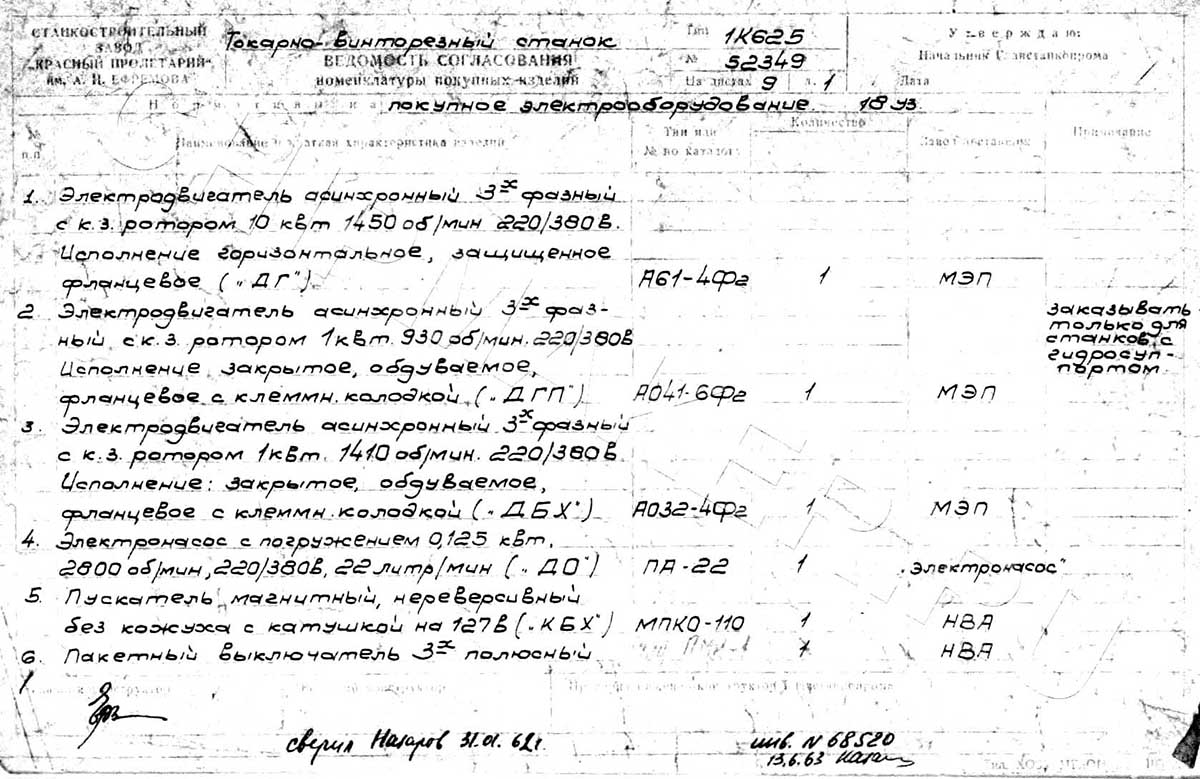 СТАНКОСТРОИТЕЛЬНЫЙ
ЗАВОД
„КРАСНЫЙ ПРОЛЕТАРИЙ“
им. А. И. ЕФРЕМОВА
Токарно-винторезный станок
ВЕДОМОСТЬ СОГЛАСОВАНИЯ
номенклатуры покупных изделий
Тип 1К625
№ 52349
На листах 9 л. 1
Утверждаю:
Начальник Главстанкопрома
Дата
покупное электрооборудование 18 уз.
№
п.п.
Наименование и краткая характеристика изделий
Тип или
№ по каталогу
Количество
Завод поставщик
Примечание
1. Электродвигатель асинхронный 3х фазный
с к.з. ротором 10 квт 1450 об/мин 220/380в.
Исполнение горизонтальное, защищенное
фланцевое („ДГ“) А61-4Фг 1 МЭП
2 Электродвигатель асинхронный 3х фаз-
ный с к.з. ротором 1 квт. 930 об/мин. 220/380в
Исполнение закрытое, обдуваемое,
фланцевое с клеммн. колодкой („ДГП“) АО41-6Фг 1 МЭП
заказывать
только для
станков с
гидросуп-
портом.
3. Электродвигатель асинхронный 3х фазный
с к.з. ротором 1 квт. 1410 об/мин. 220/380в
Исполнение: закрытое, обдуваемое,
фланцевое с клеммн. колодкой („ДБХ“) АО32-4Фг 1 МЭП
4. Электронасос с погружением 0,125 квт,
2800 об/мин, 220/380в, 22 литр/мин („ДО“) ПА-22 1 „Электронасос“
5. Пускатель магнитный, нереверсивный
без кожуха с катушкой на 127в („КБХ“) МПКО-110 1 НВА
6. Пакетный выключатель 3х полюсный 1 НВА
сверил Назаров 31.01.62г.
инв. N 68520
13.6.63